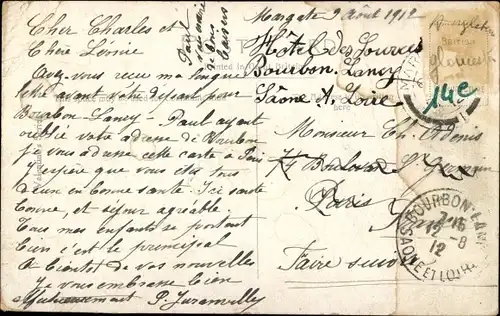 Margate 9 Août 1912
Cher Charles et
Chère Léonie
Avez-vous recu ma longue
lettre avant votre départ pour
Bourbon-Lancy - Paul ayant
oublié votre adresse de Bourbon
je vous adresse cette carte à Paris
J'espère que vous êtes tous
deux en bonne santé. Ici santé
bonne, et séjour agréable.
Tous mes enfants se portent
bien c'est le principal
A bientôt de vos nouvelles
Je vous embrasse bien
affectueusement P.
Paul
vous
Hôtel des Sources
Bourbon-Lancy
Saône & Loire
14e
Monsieur Ch. Denis
Boulevard St Germain
Paris
Faire suivre
BOURBON-LANCY
12
SAONE ET LOIRE
here